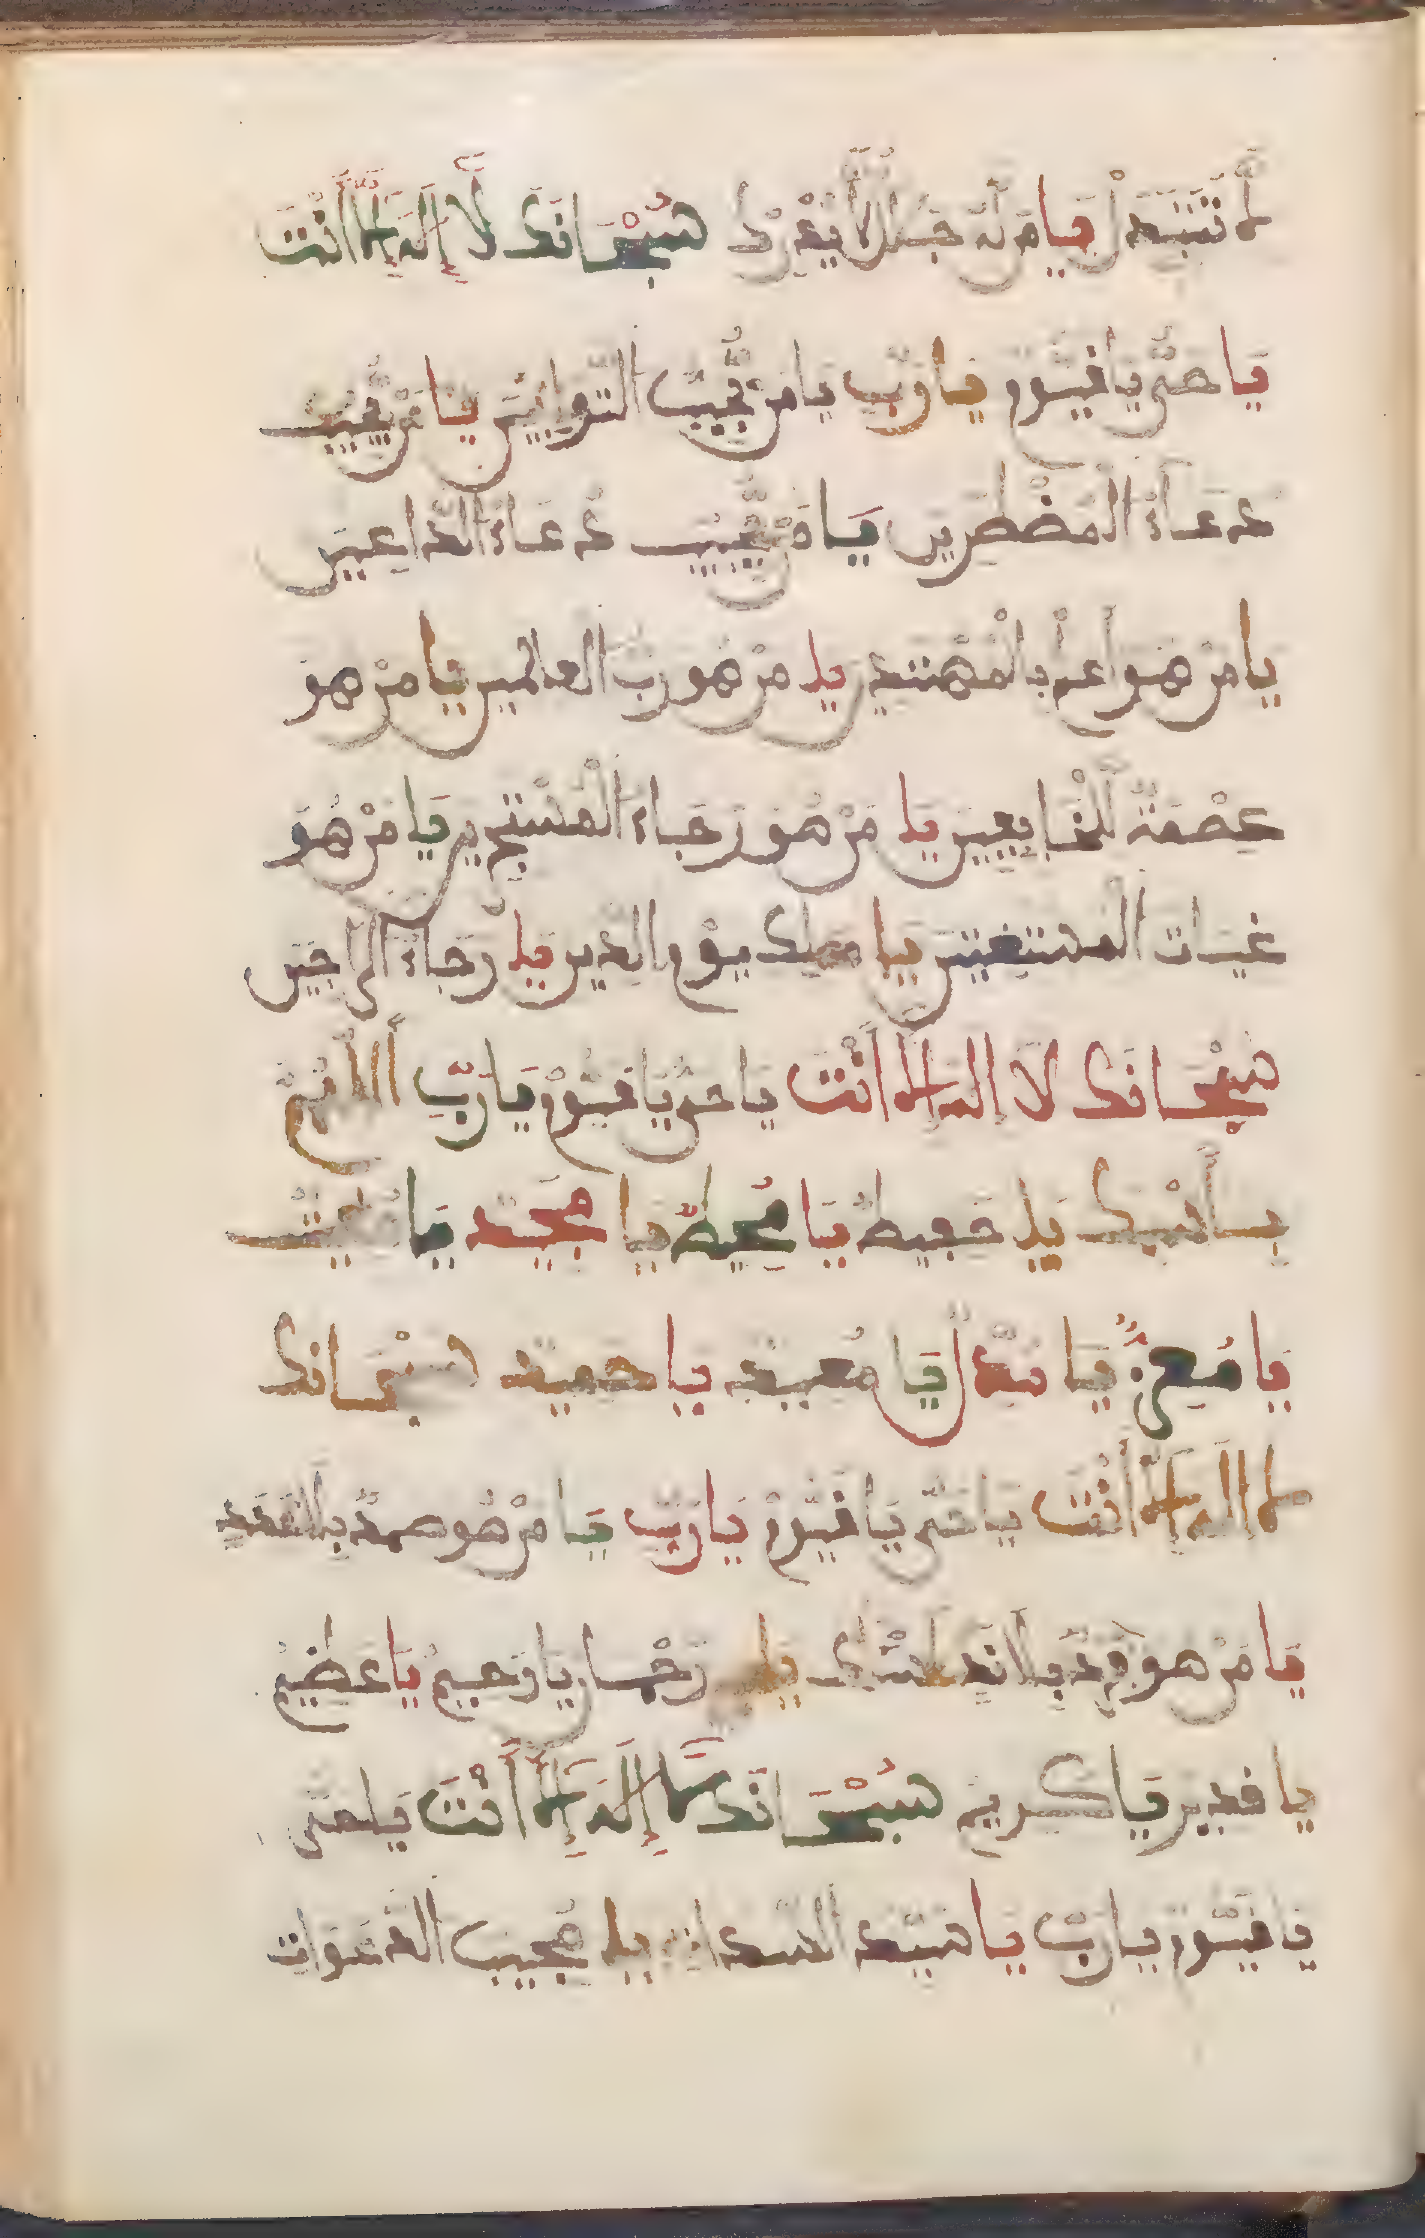 لا تتبدل يا من له جلال لا يغير سبحانك لا إله إلا أنت
يا حي يا قيوم يا رب يا من يحب التوابين يا من يجيب
دعاء المضطرين يا من يجيب دعاء الداعين
يا من هو أعلم بالمهتدين يا من هو رب العالمين يا من هو
عصمة الخايفين يا من هو رجاء يا من هو
غيات المستغيتين يا ملك يوم الدين يا رجاء الراجين
سبحانك لا إله إلا أنت يا حي يا قيوم يا رب اللهم
بأسمك يا حفيظ يا محيط يا مجيد يا مغيت
يا معز يا مذل يا معيد يا حميد سبحانك
لا إله إلا أنت يا حي يا قيوم يا رب يا من هو صمد بلا
يا من هو فرد بلا ند يا رحمان يا رحيم يا عظيم
يا قدير يا كريم سبحانك لا إله إلا أنت يا حي
يا قيوم يا رب يا سيد السادات يا مجيب الدعوات